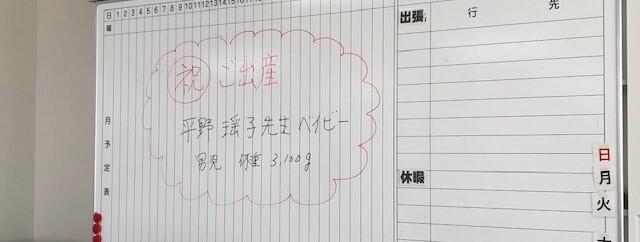 日 1 2 3 4 5 6 7 8 9 10 11 12 13 14
曜
月予定表
㊗ ご出産
平野 瑶子先生 ベイビー
男児 体重 3,100g
出張
行 先
休暇
日
月
火